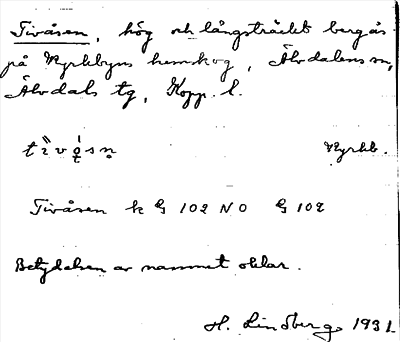 Tivåsen, hög och långsträckt bergås
på Kyrkbyns hemskog, Älvdalens sn,
Älvdals tg, Kopp. l.
tìvǫ́sn̥ Kyrkb.
Tivåsen k G 102 NO G 102
Betydelsen av namnet oklar.
H. Lindberg 1931